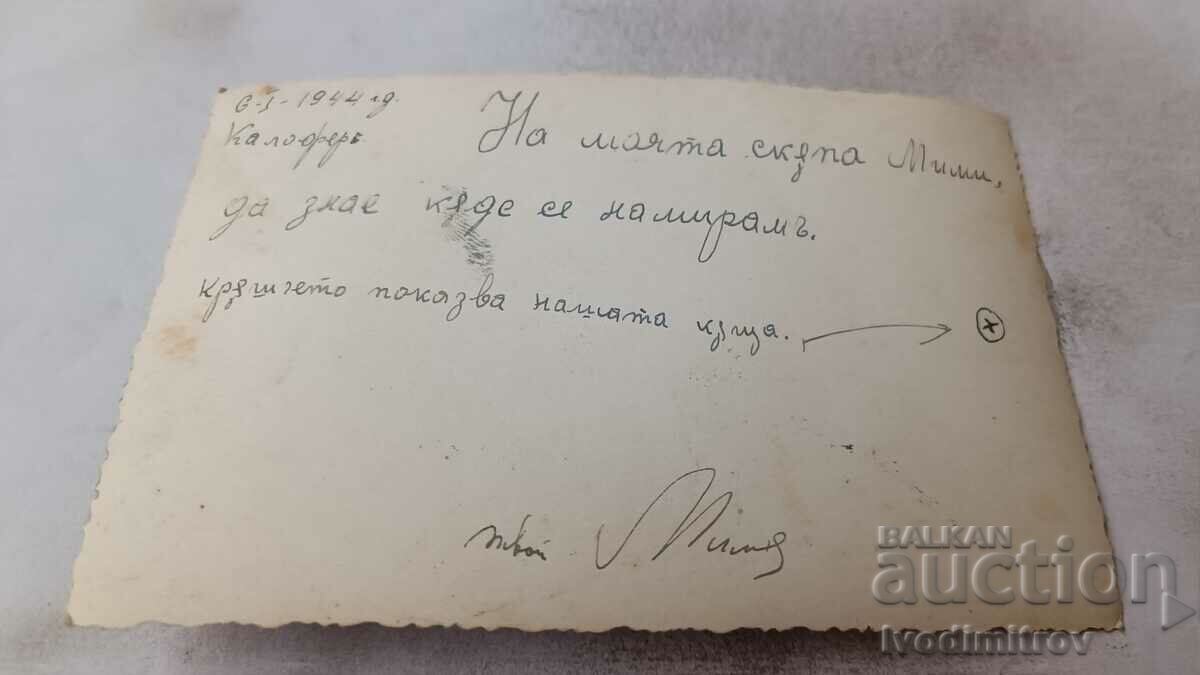 6-I-1944 год.
Калоферъ
На моята скѫпа Мими,
да знае кѫде се намирамъ.
кръшчето показва нашата кѫща.
твой
BALKAN
auction
Ivodimitrov